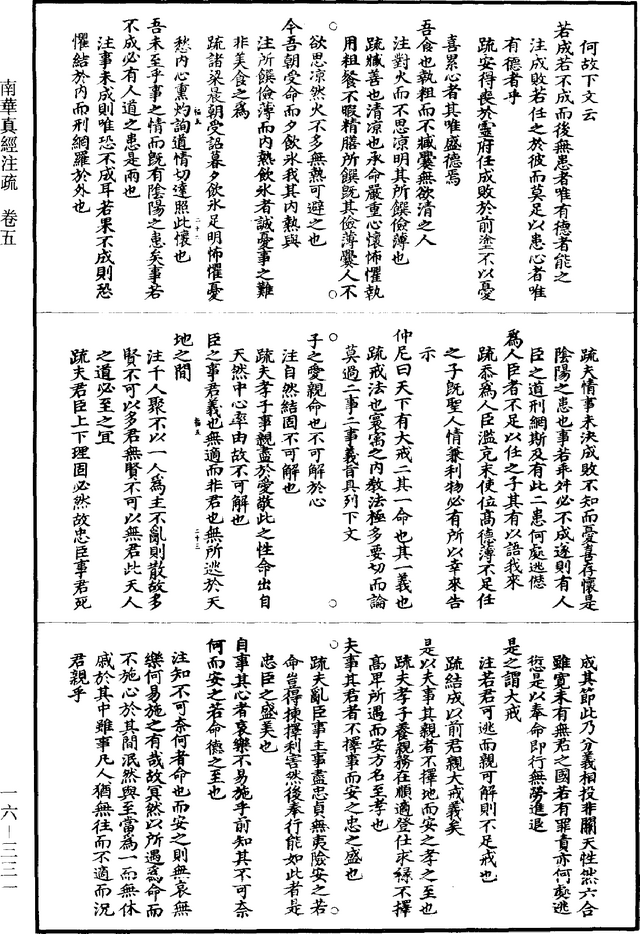 何故下文云
若成若不成而後無患者唯有德者能之
注成敗若任之於彼而莫足以患心者唯
有德者乎
疏安得喪於靈府任成敗於前塗不以憂
喜累心者其唯盛德焉
吾食也執粗而不臧爨無欲清之人
注對火而不思涼明其所饌儉薄也
疏臧善也清涼也承命嚴重心懷怖懼執
用粗飡不暇精膳所饌既其儉薄爨人不
欲思凉然火不多無熱可避之也
今吾朝受命而夕飲氷我其內熱與
注所饌儉薄而內熱飲氷者誠憂事之難
非美食之為
疏諸梁晨朝受詔暮夕飲氷足明怖懼憂
愁內心熏灼詢道情切達照此懷也
吾未至乎事之情而既有陰陽之患矣事若
不成必有人道之患是兩也
注事未成則唯恐不成耳若果不成則恐
懼結於內而刑網羅於外也
疏夫情事未決成敗不知而憂喜存懷是
陰陽之患也事若乖舛必不成遂則有人
臣之道刑網斯及有此二患何處逃愆
爲人臣者不足以任之子其有以語我來
疏忝爲人臣濫充末使位高德薄不足任
之子既聖人情兼利物必有所以幸來告
示
仲尼曰天下有大戒二其一命也其一義也
疏戒法也寰㝢之內教法極多要切而論
莫過二事二事義旨具列下文
子之愛親命也不可解於心
注自然結固不可解也
疏夫孝子事親盡於愛敬此之性命出自
天然中心率由故不可解也
臣之事君義也無適而非君也無所逃於天
地之間
注千人聚不以一人爲主不亂則散故多
賢不可以多君無賢不可以無君此天人
之道必至之宜
疏夫君臣上下理固必然故忠臣事君死
成其節此乃分義相投非關天性然六合
雖寬未有無君之國若有罪責亦何處逃
愆是以奉命即行無勞進退
是之謂大戒
注若君可逃而親可解則不足戒也
疏結成以前君親大戒義矣
是以夫事其親者不擇地而安之孝之至也
疏夫孝子養親務在順適登仕求祿不擇
高卑所遇而安方名至孝也
夫事其君者不擇事而安之忠之盛也
疏夫亂臣事主事盡忠貞無夷險安之若
命豈得揀擇利害然後奉行能如此者是
忠臣之盛美也
自事其心者哀樂不易施乎前知其不可奈
何而安之若命德之至也
注知不可奈何者命也而安之則無哀無
樂何易施之有哉故冥然以所遇爲命而
不施心於其間泯然與至當爲一而無休
戚於其中雖事凡人猶無往而不適而況
君親乎
南華真經注疏 卷五
一六—三三一